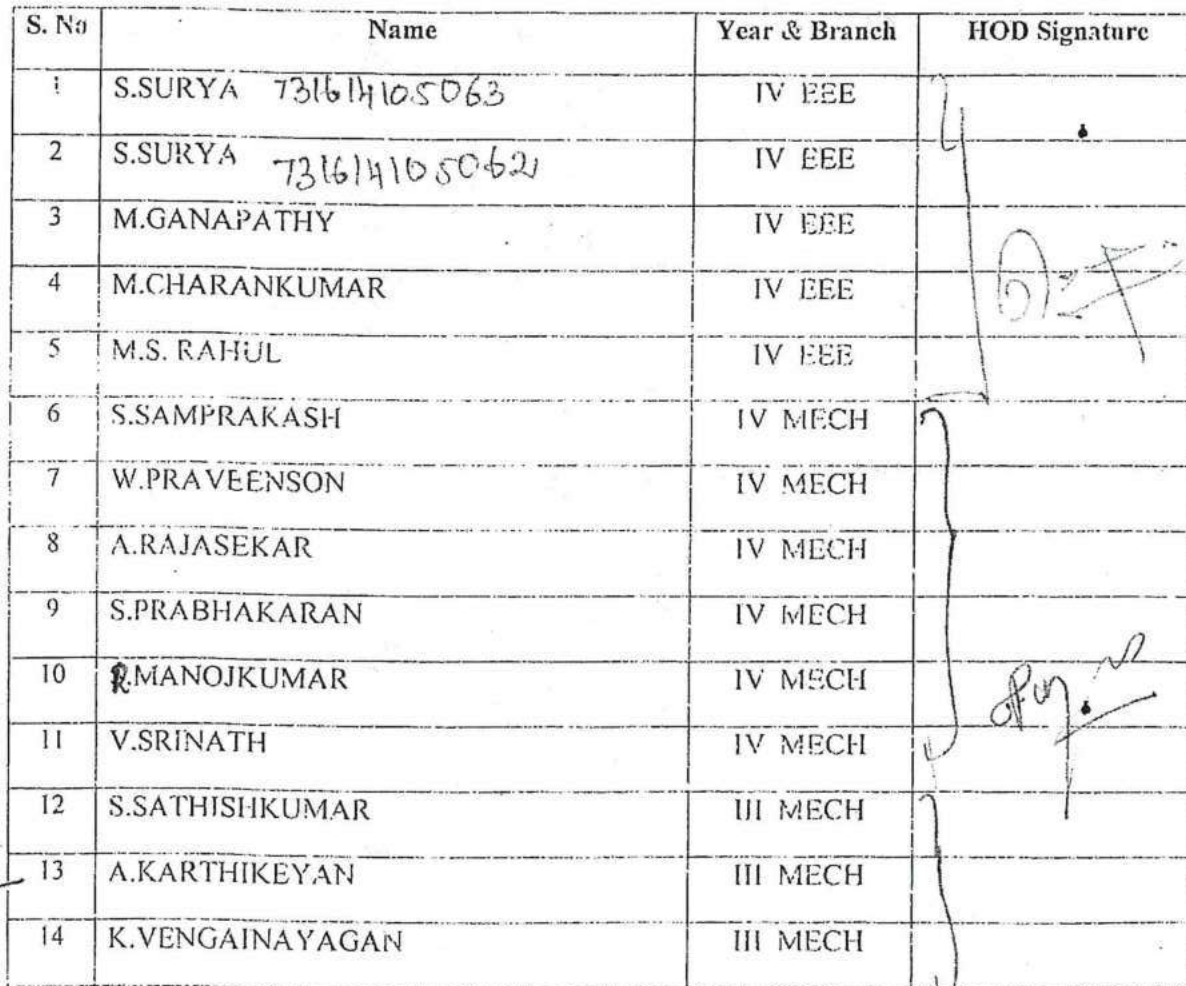 S. No Name Year & Branch HOD Signature
1 S.SURYA 731614105063 IV EEE
2 S.SURYA 731614105062 IV EEE
3 M.GANAPATHY IV EEE
4 M.CHARANKUMAR IV EEE
5 M.S. RAHUL IV EEE
6 S.SAMPRAKASH IV MECH
7 W.PRAVEENSON IV MECH
8 A.RAJASEKAR IV MECH
9 S.PRABHAKARAN IV MECH
10 R.MANOJKUMAR IV MECH
11 V.SRINATH IV MECH
12 S.SATHISHKUMAR III MECH
13 A.KARTHIKEYAN III MECH
14 K.VENGAINAYAGAN III MECH